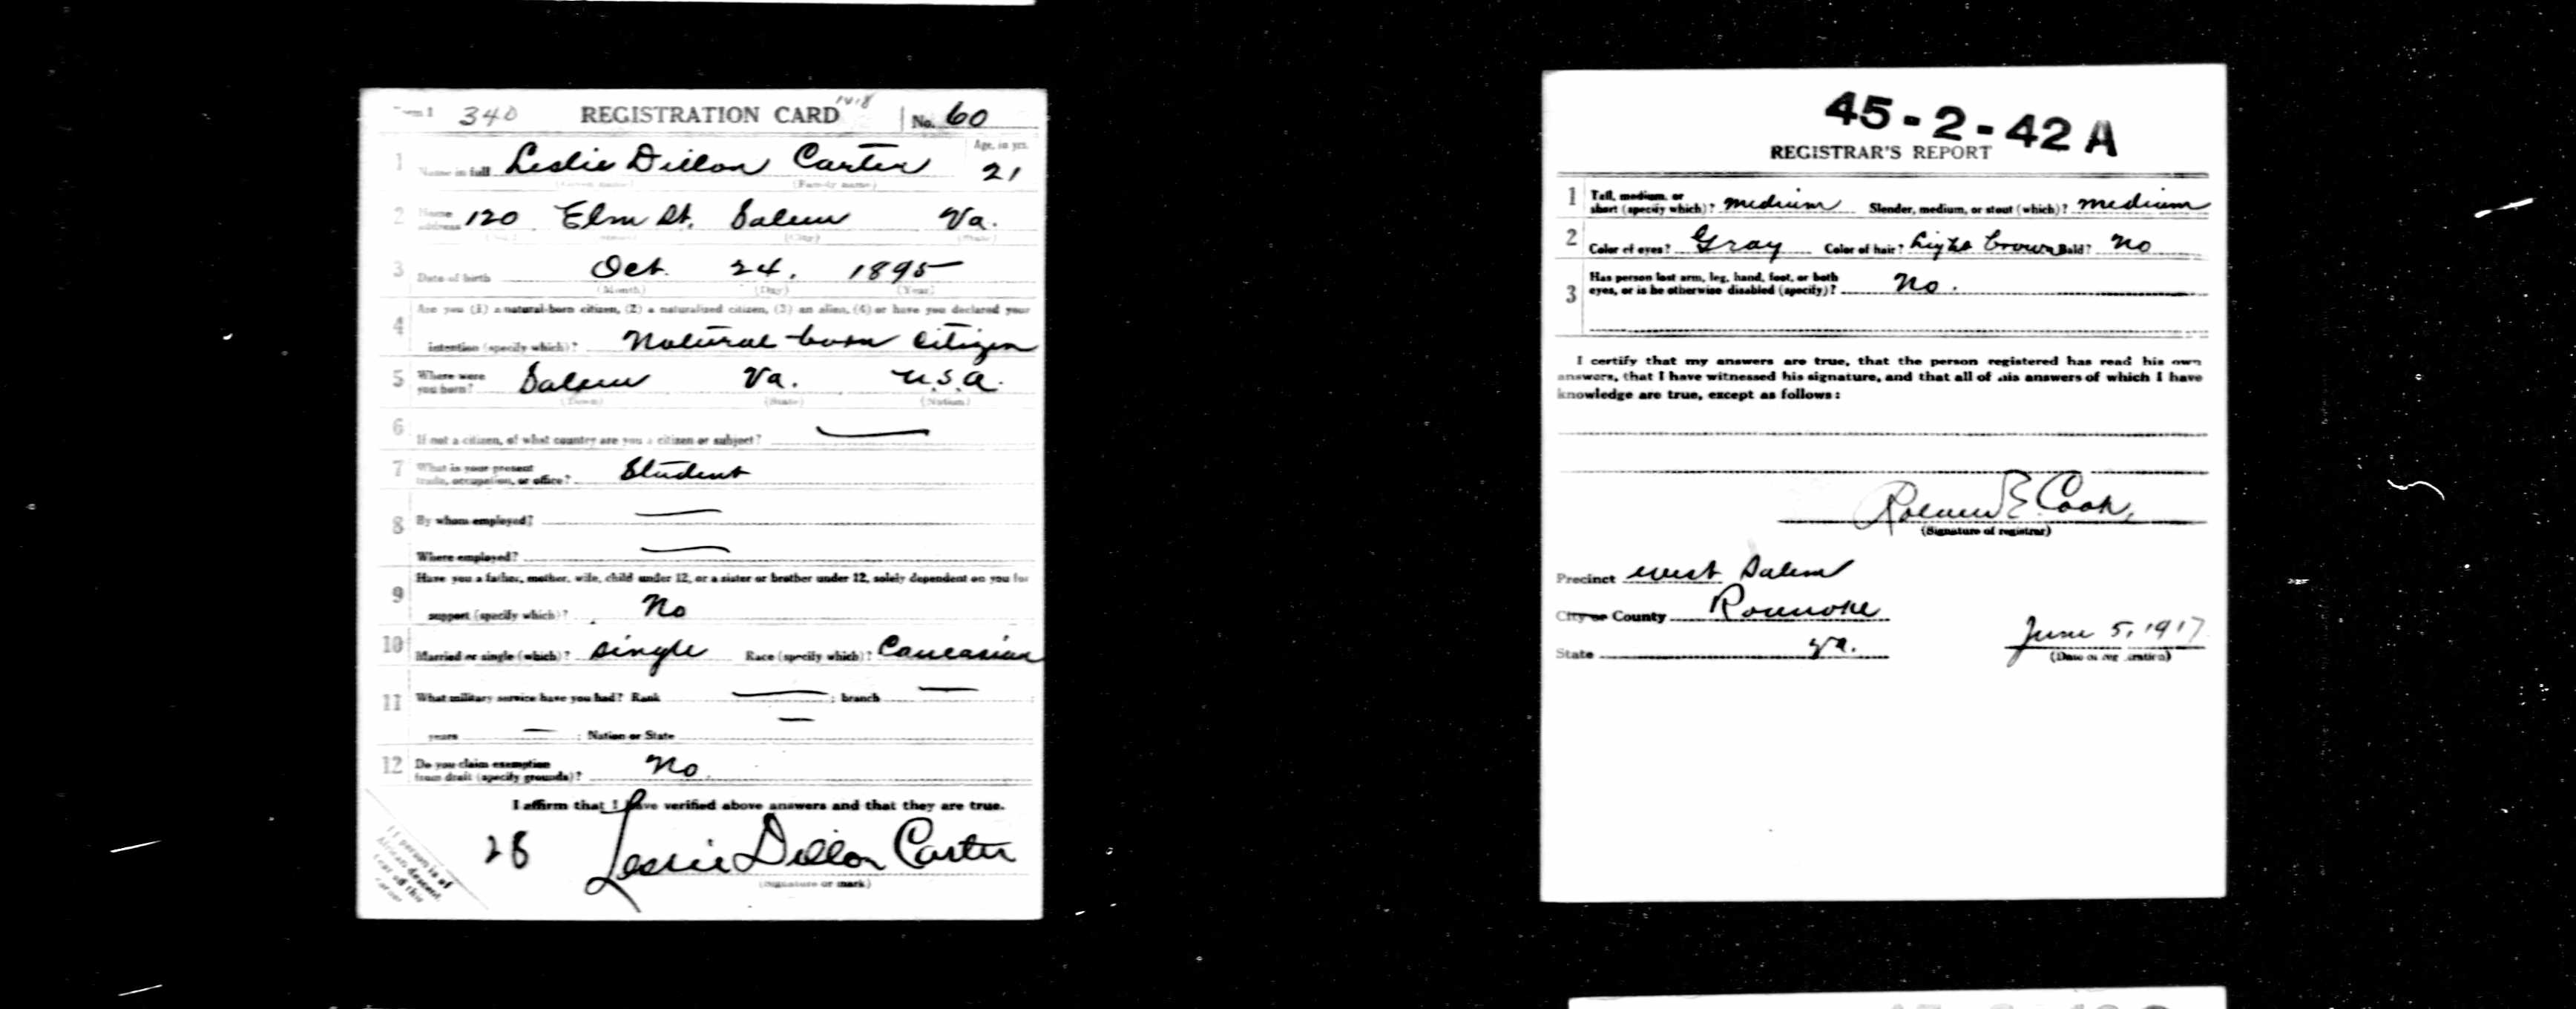 Form 1 340 REGISTRATION CARD 1418 No. 60
1 Name in full Leslie Dillon Carter Age, in yrs. 21
(Given name) (Family name)
2 Home address 120 Elm St. Salem Va.
(No.) (Street) (City) (State)
3 Date of birth Oct. 24, 1895
(Month) (Day) (Year)
4 Are you (1) a natural-born citizen, (2) a naturalized citizen, (3) an alien, (4) or have you declared your
intention (specify which)? Natural-born citizen
5 Where were you born? Salem Va. U.S.A.
(Town) (State) (Nation)
6 If not a citizen, of what country are you a citizen or subject? —
7 What is your present trade, occupation, or office? Student
8 By whom employed? —
Where employed? —
9 Have you a father, mother, wife, child under 12, or a sister or brother under 12, solely dependent on you for
support (specify which)? No
10 Married or single (which)? single Race (specify which)? Caucasian
11 What military service have you had? Rank — ; branch —
years — ; Nation or State —
12 Do you claim exemption from draft (specify grounds)? No.
I affirm that I have verified above answers and that they are true.
28 Leslie Dillon Carter
(Signature or mark)
If person is of
African descent,
tear off this
corner
45-2-42 A
REGISTRAR'S REPORT
1 Tall, medium, or short (specify which)? medium Slender, medium, or stout (which)? medium
2 Color of eyes? Gray Color of hair? Light brown Bald? No
3 Has person lost arm, leg, hand, foot, or both
eyes, or is he otherwise disabled (specify)? No.
I certify that my answers are true, that the person registered has read his own
answers, that I have witnessed his signature, and that all of his answers of which I have
knowledge are true, except as follows:
E Cook,
(Signature of registrar)
Precinct West Salem
City or County Roanoke
State Va.
June 5, 1917
(Date of registration)